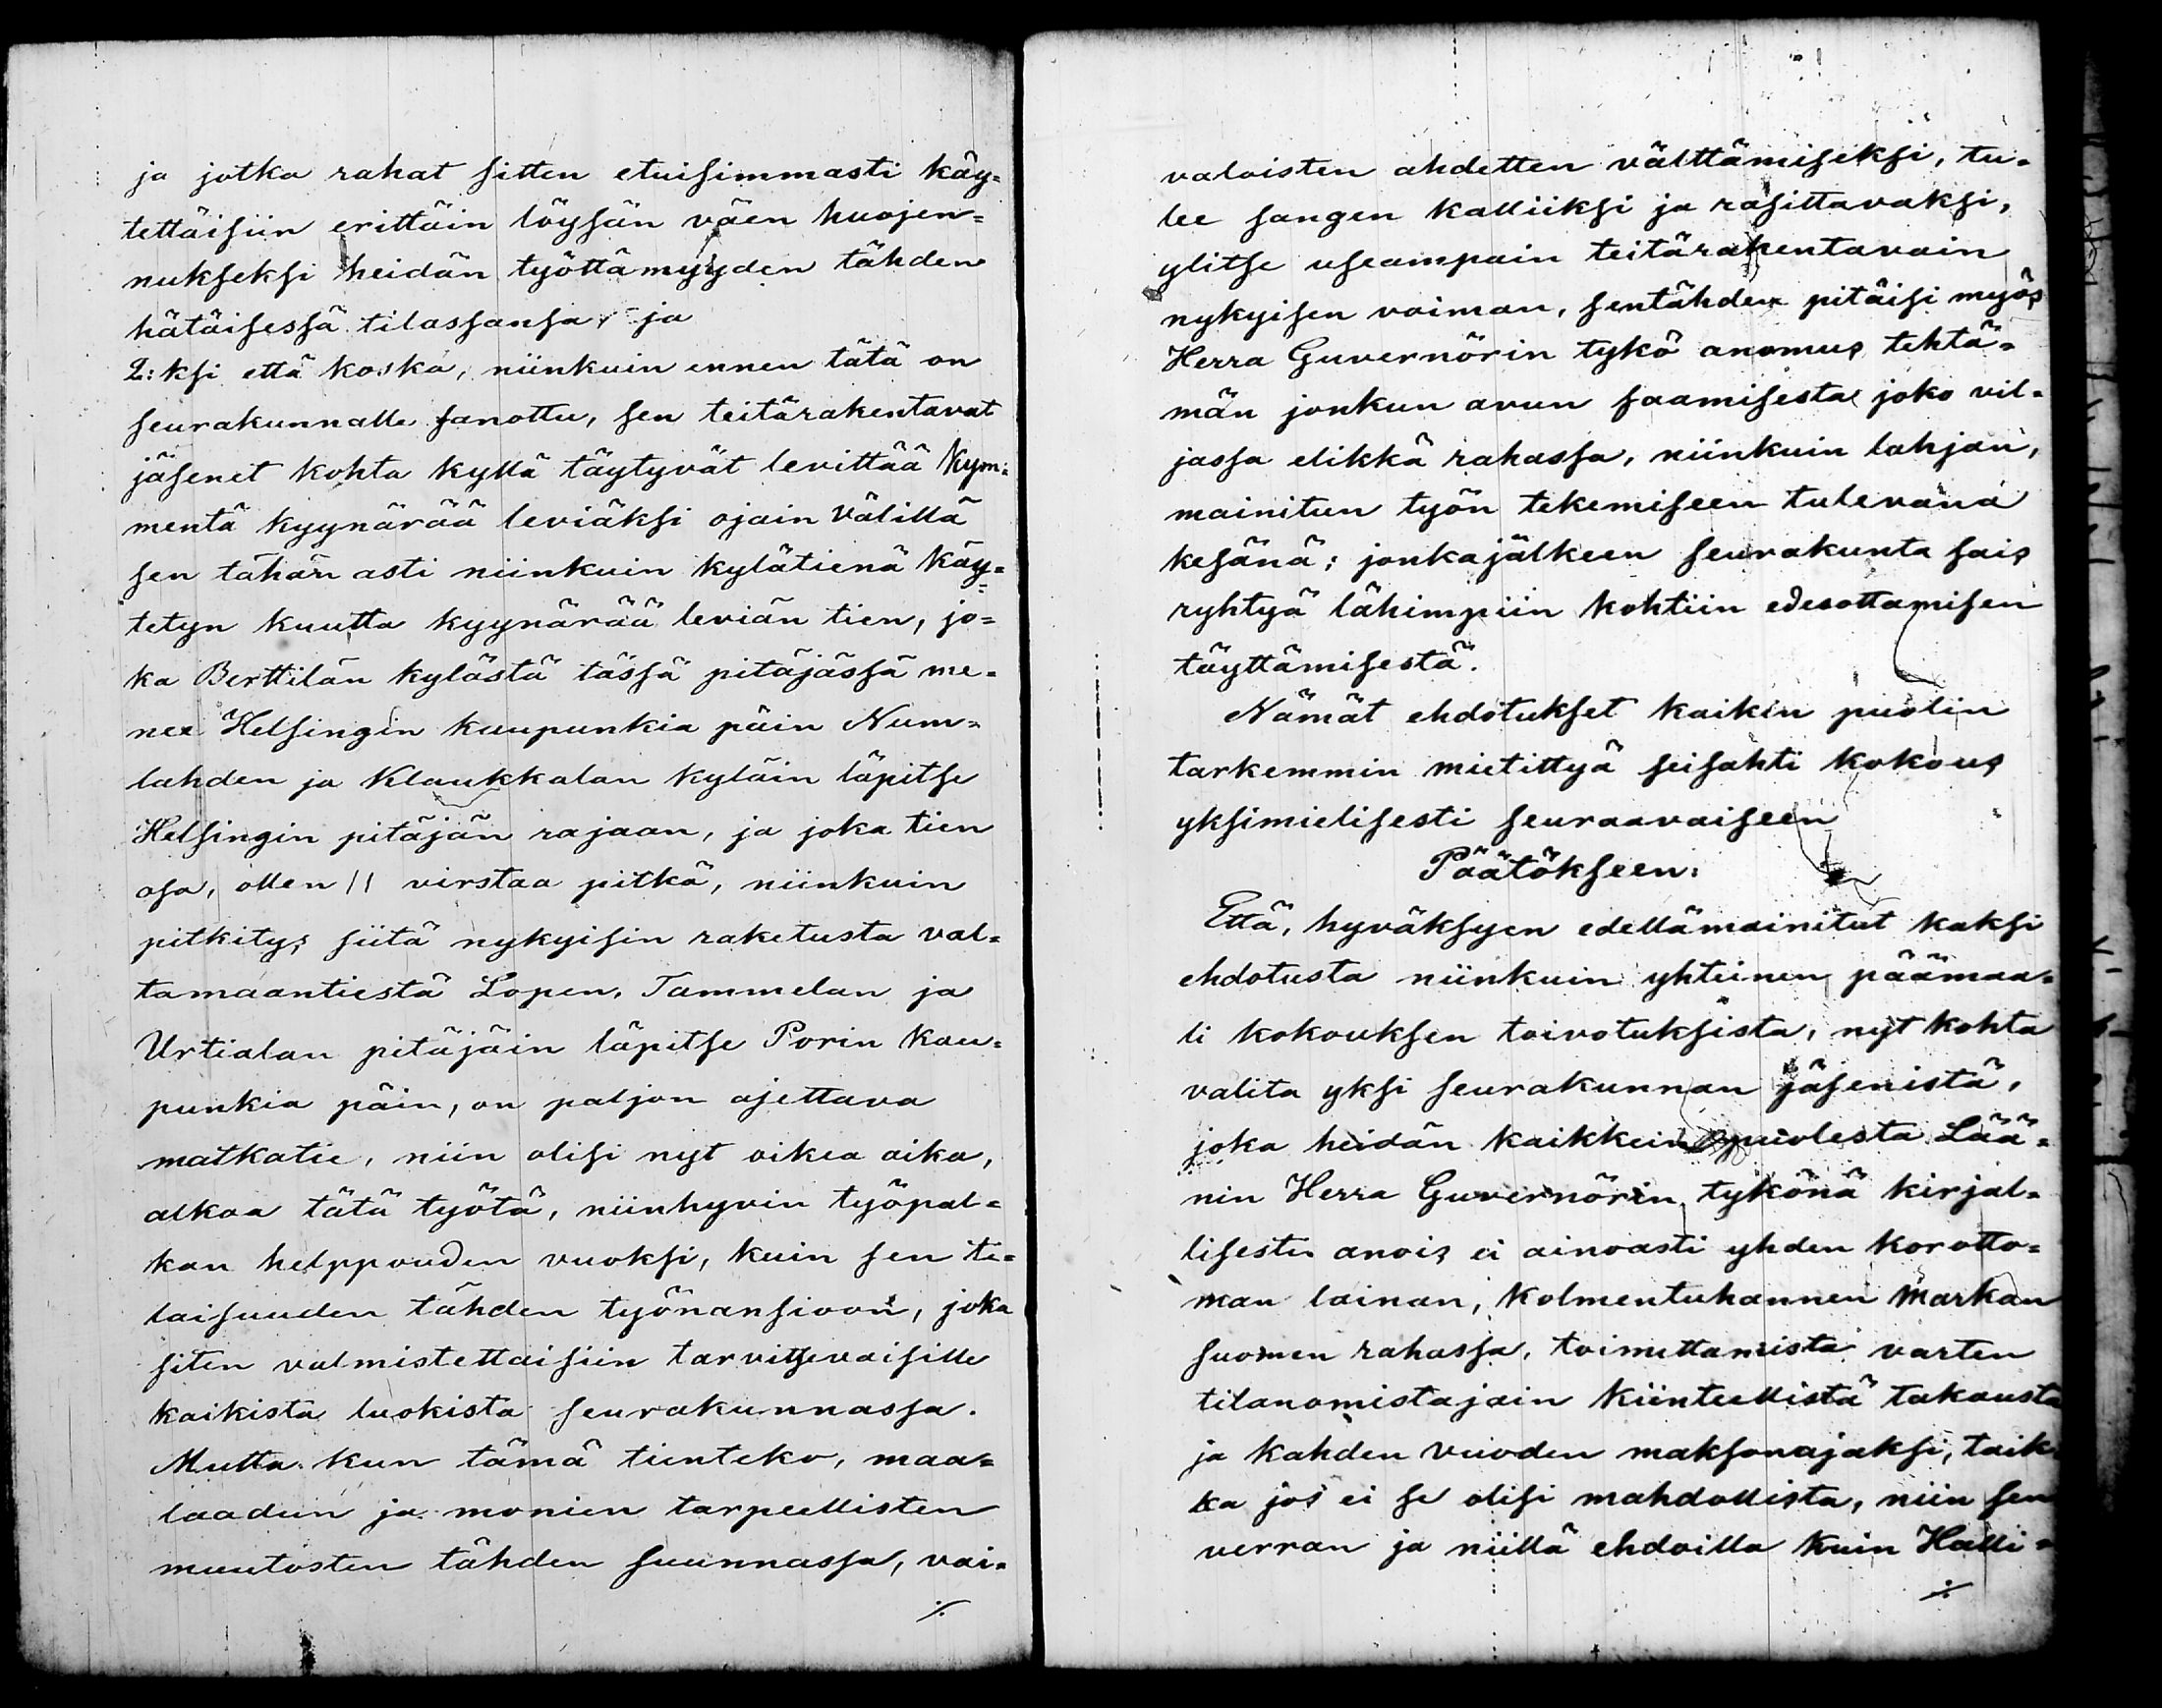 ja jotka rahat sitten etuisimmasti käy=
tettäisiin erittäin löysän väen huojen=
nukseksi heidän työttämyyden tähden
hätäisessä tilassansa, ja
2:ksi että koska, niinkuin ennen tätä on
seurakunnalle sanottu, sen teitärakentavat
jäsenet kohta kyllä täytyvät levittää kym=
mentä kyynärää leviäksi ojain välillä
sen tähän asti niinkuin kylätienä käy=
tetyn kuutta kyynärää leviän tien, jo=
ka Berttilän kylästä tässä pitäjässä me=
nee Helsingin kaupunkia päin Num=
lahden ja Klaukkalan kyläin läpitse
Helsingin pitäjän rajaan, ja joka tien
osa, ollen 11 virstaa pitkä, niinkuin
pitkitys siitä nykyisin raketusta val=
tamaantiestä Lopen, Tammelan ja
Urtialan pitäjäin läpitse Porin kau=
punkia päin, on paljon ajettava
matkatie, niin olisi nyt oikea aika,
alkaa tätä työtä, niinhyvin työpal=
kan helppouden vuoksi, kuin sen ti=
laisuuden tähden työnansioon, joka
siten valmistettaisiin tarvitsevaisille
kaikista luokista seurakunnassa.
Mutta kun tämä tienteko, maa=
laadun ja monien tarpeellisten
muutosten tähden suunnassa, vai=
./.
valoisten ahdetten välttämiseksi, tu=
lee sangen kalliiksi ja rasittavaksi,
ylitse useampain teitärakentavain
nykyisen voiman, sentähden pitäisi myös
Herra Guvernörin tykö anomus tehtä=
män jonkun avun saamisesta joko vil=
jassa elikkä rahassa, niinkuin lahjan,
mainitun työn tekemiseen tulevana
kesänä; jonkajälkeen seurakunta sais
ryhtyä lähimpiin kohtiin edesottamisen
täyttämisestä.
Nämät ehdotukset kaikin puolin
tarkemmin mietittyä seisahti kokous
yksimielisesti seuraavaiseen
Päätökseen:
Että, hyväksyen edellämainitut kaksi
ehdotusta niinkuin yhteinen päämaa=
li kokouksen toivotuksista, nyt kohta
valita yksi seurakunnan jäsenistä,
joka heidän kaikkein puolesta Lää=
nin Herra Guvernörin tykönä kirjal=
lisesti anois ei ainoasti yhden korotto=
man lainan, kolmentuhannen markan
suomen rahassa, toimittamista varten
tilanomistajain kiinteellistä takausta
ja kahden vuoden maksonajaksi, taik=
ka jos ei se olisi mahdollista, niin sen
verran ja niillä ehdoilla kuin Halli=
./.